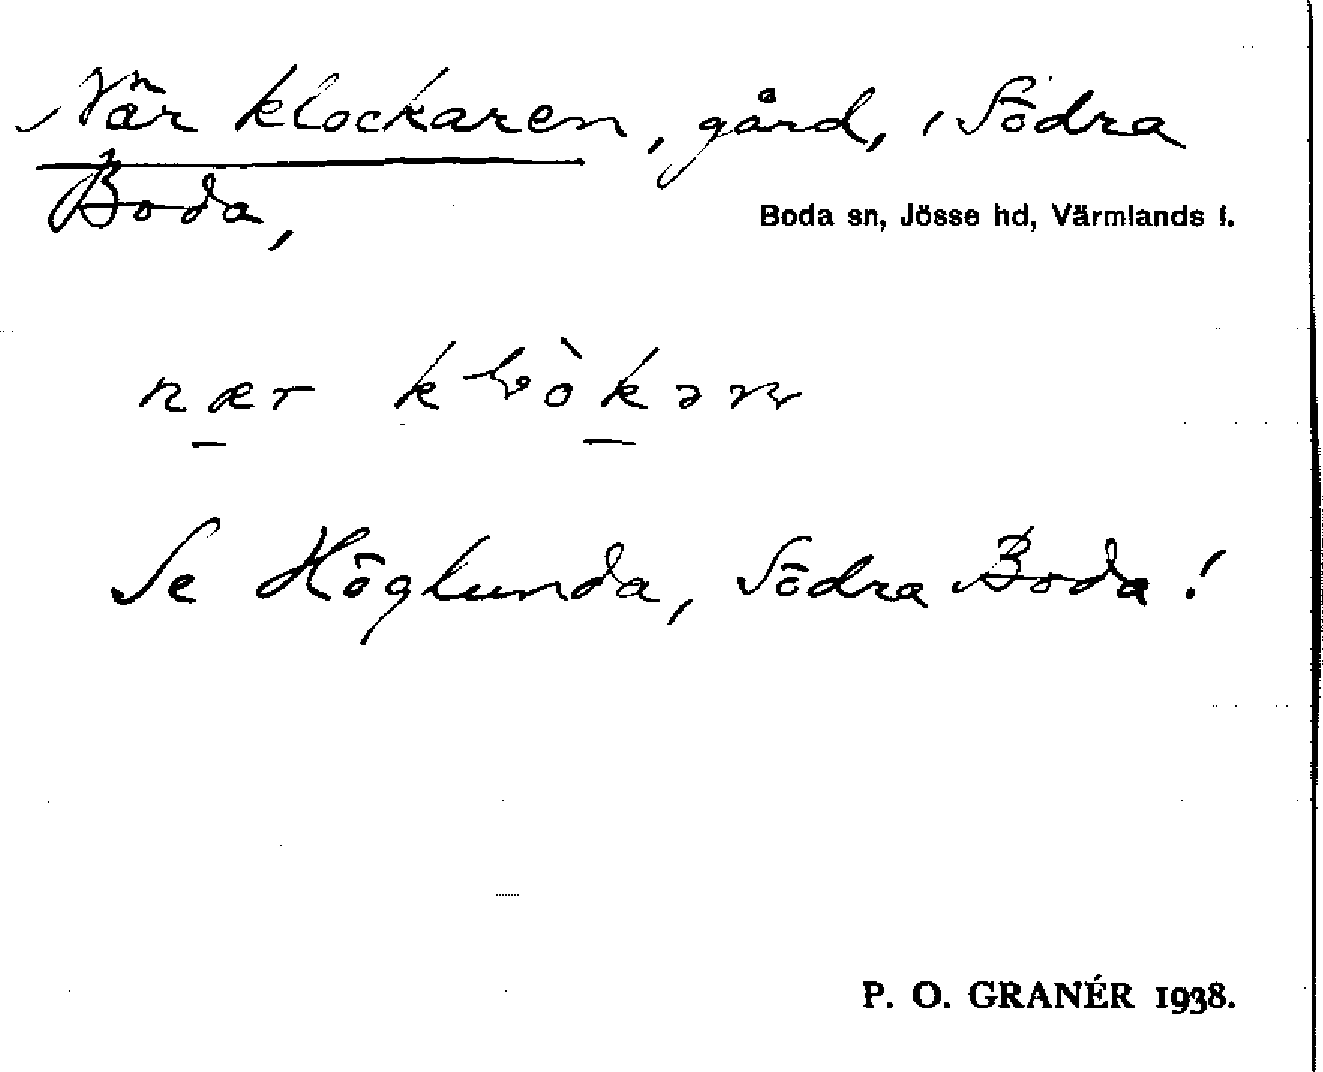 När klockaren, gård, i Södra
Boda,
Boda sn, Jösse hd, Värmlands l.
nær
Se Höglunda, Södra Boda!
P. O. GRANÉR 1938.